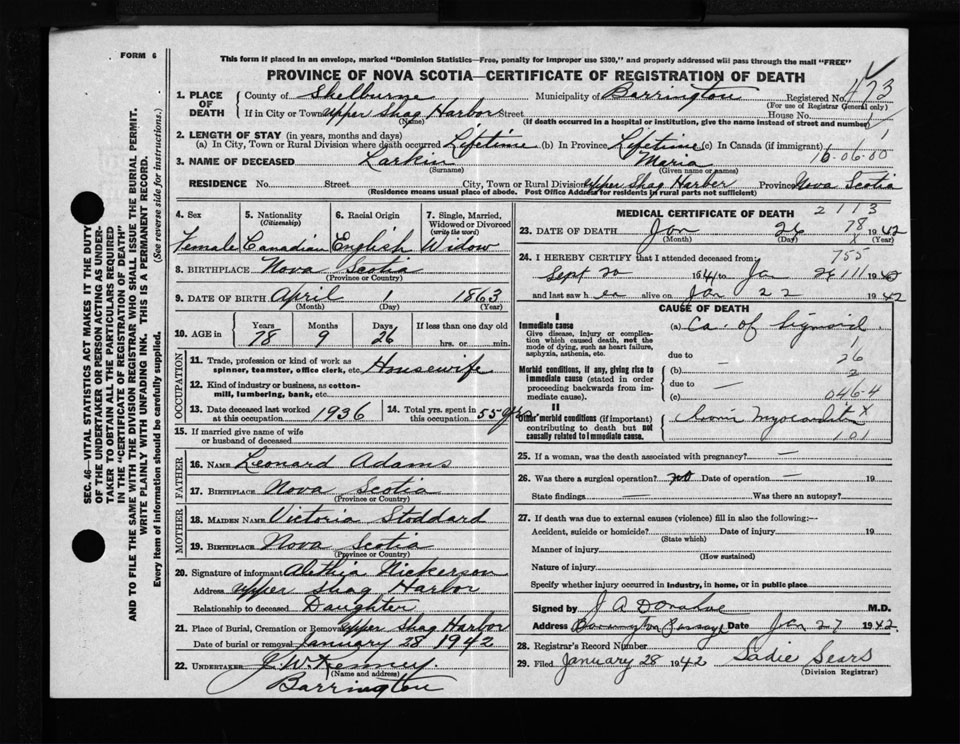 FORM 6
This form if placed in an envelope, marked "Dominion Statistics—Free, penalty for improper use $300," and properly addressed will pass through the mail "FREE"
PROVINCE OF NOVA SCOTIA—CERTIFICATE OF REGISTRATION OF DEATH
SEC. 46—VITAL STATISTICS ACT MAKES IT THE DUTY
OF THE UNDERTAKER OR PERSON ACTING AS UNDER-
TAKER TO OBTAIN ALL THE PARTICULARS REQUIRED
IN THE "CERTIFICATE OF REGISTRATION OF DEATH"
AND TO FILE THE SAME WITH THE DIVISION REGISTRAR WHO SHALL ISSUE THE BURIAL PERMIT.
WRITE PLAINLY WITH UNFADING INK. THIS IS A PERMANENT RECORD.
Every item of information should be carefully supplied. (See reverse side for instructions.)
1. PLACE OF DEATH County of Shelburne Municipality of Barrington Registered No. 473
(For use of Registrar General only)
If in City or Town Upper Shag Harbor Street House No.
(Name) (If death occurred in a hospital or institution, give the name instead of street and number)
2. LENGTH OF STAY (in years, months and days)
(a) In City, Town or Rural Division where death occurred Lifetime (b) In Province Lifetime (c) In Canada (if immigrant)
3. NAME OF DECEASED Larkin Maria 16-06-00
(Surname) (Given name or names)
RESIDENCE No. Street City, Town or Rural Division Upper Shag Harber Province Nova Scotia
(Residence means usual place of abode. Post Office Address for residents in rural parts not sufficient)
4. Sex 5. Nationality (Citizenship) 6. Racial Origin 7. Single, Married, Widowed or Divorced (write the word)
Female Canadian English Widow
8. BIRTHPLACE Nova Scotia
(Province or Country)
9. DATE OF BIRTH April 1 1863
(Month) (Day) (Year)
10. AGE in Years Months Days If less than one day old
78 9 26 hrs. or min.
OCCUPATION
11. Trade, profession or kind of work as spinner, teamster, office clerk, etc. Housewife
12. Kind of industry or business, as cotton-mill, lumbering, bank, etc.
13. Date deceased last worked at this occupation 1936 14. Total yrs. spent in this occupation 55 yrs
15. If married give name of wife or husband of deceased
FATHER
16. NAME Leonard Adams
17. BIRTHPLACE Nova Scotia
(Province or Country)
MOTHER
18. MAIDEN NAME Victoria Stoddard
19. BIRTHPLACE Nova Scotia
(Province or Country)
20. Signature of informant Alethia Nickerson
Address Upper Shag Harbor
Relationship to deceased Daughter
21. Place of Burial, Cremation or Removal Upper Shag Harbor
Date of burial or removal January 28 1942
22. UNDERTAKER J. W. Kenney.
(Name and address)
Barrington
MEDICAL CERTIFICATE OF DEATH 2113
23. DATE OF DEATH Jan 26 78 1942
(Month) (Day) (Year)
755
24. I HEREBY CERTIFY that I attended deceased from
Sept 20 1941 to Ja 26 111 1942
and last saw h er alive on Jan 22 1942
CAUSE OF DEATH
I
Immediate cause (a) Ca. of Sigmoid
Give disease, injury or complication which caused death, not the mode of dying, such as heart failure, asphyxia, asthenia, etc. 1
due to 26
Morbid conditions, if any, giving rise to immediate cause (stated in order proceeding backwards from immediate cause). (b) 2
due to
(c) 046-4
II
Other morbid conditions (if important) contributing to death but not causally related to immediate cause. Chronic Myocarditis x
101
25. If a woman, was the death associated with pregnancy? —
26. Was there a surgical operation? no Date of operation — 19
State findings — Was there an autopsy?
27. If death was due to external causes (violence) fill in also the following:—
Accident, suicide or homicide? Date of injury 19
(State which)
Manner of injury
(How sustained)
Nature of injury
Specify whether injury occurred in industry, in home, or in public place
Signed by J A Donahoe M.D.
Address Barrington Passage Date Jan 27 1942.
28. Registrar's Record Number
29. Filed January 28 1942 Sadie Sears
(Division Registrar)